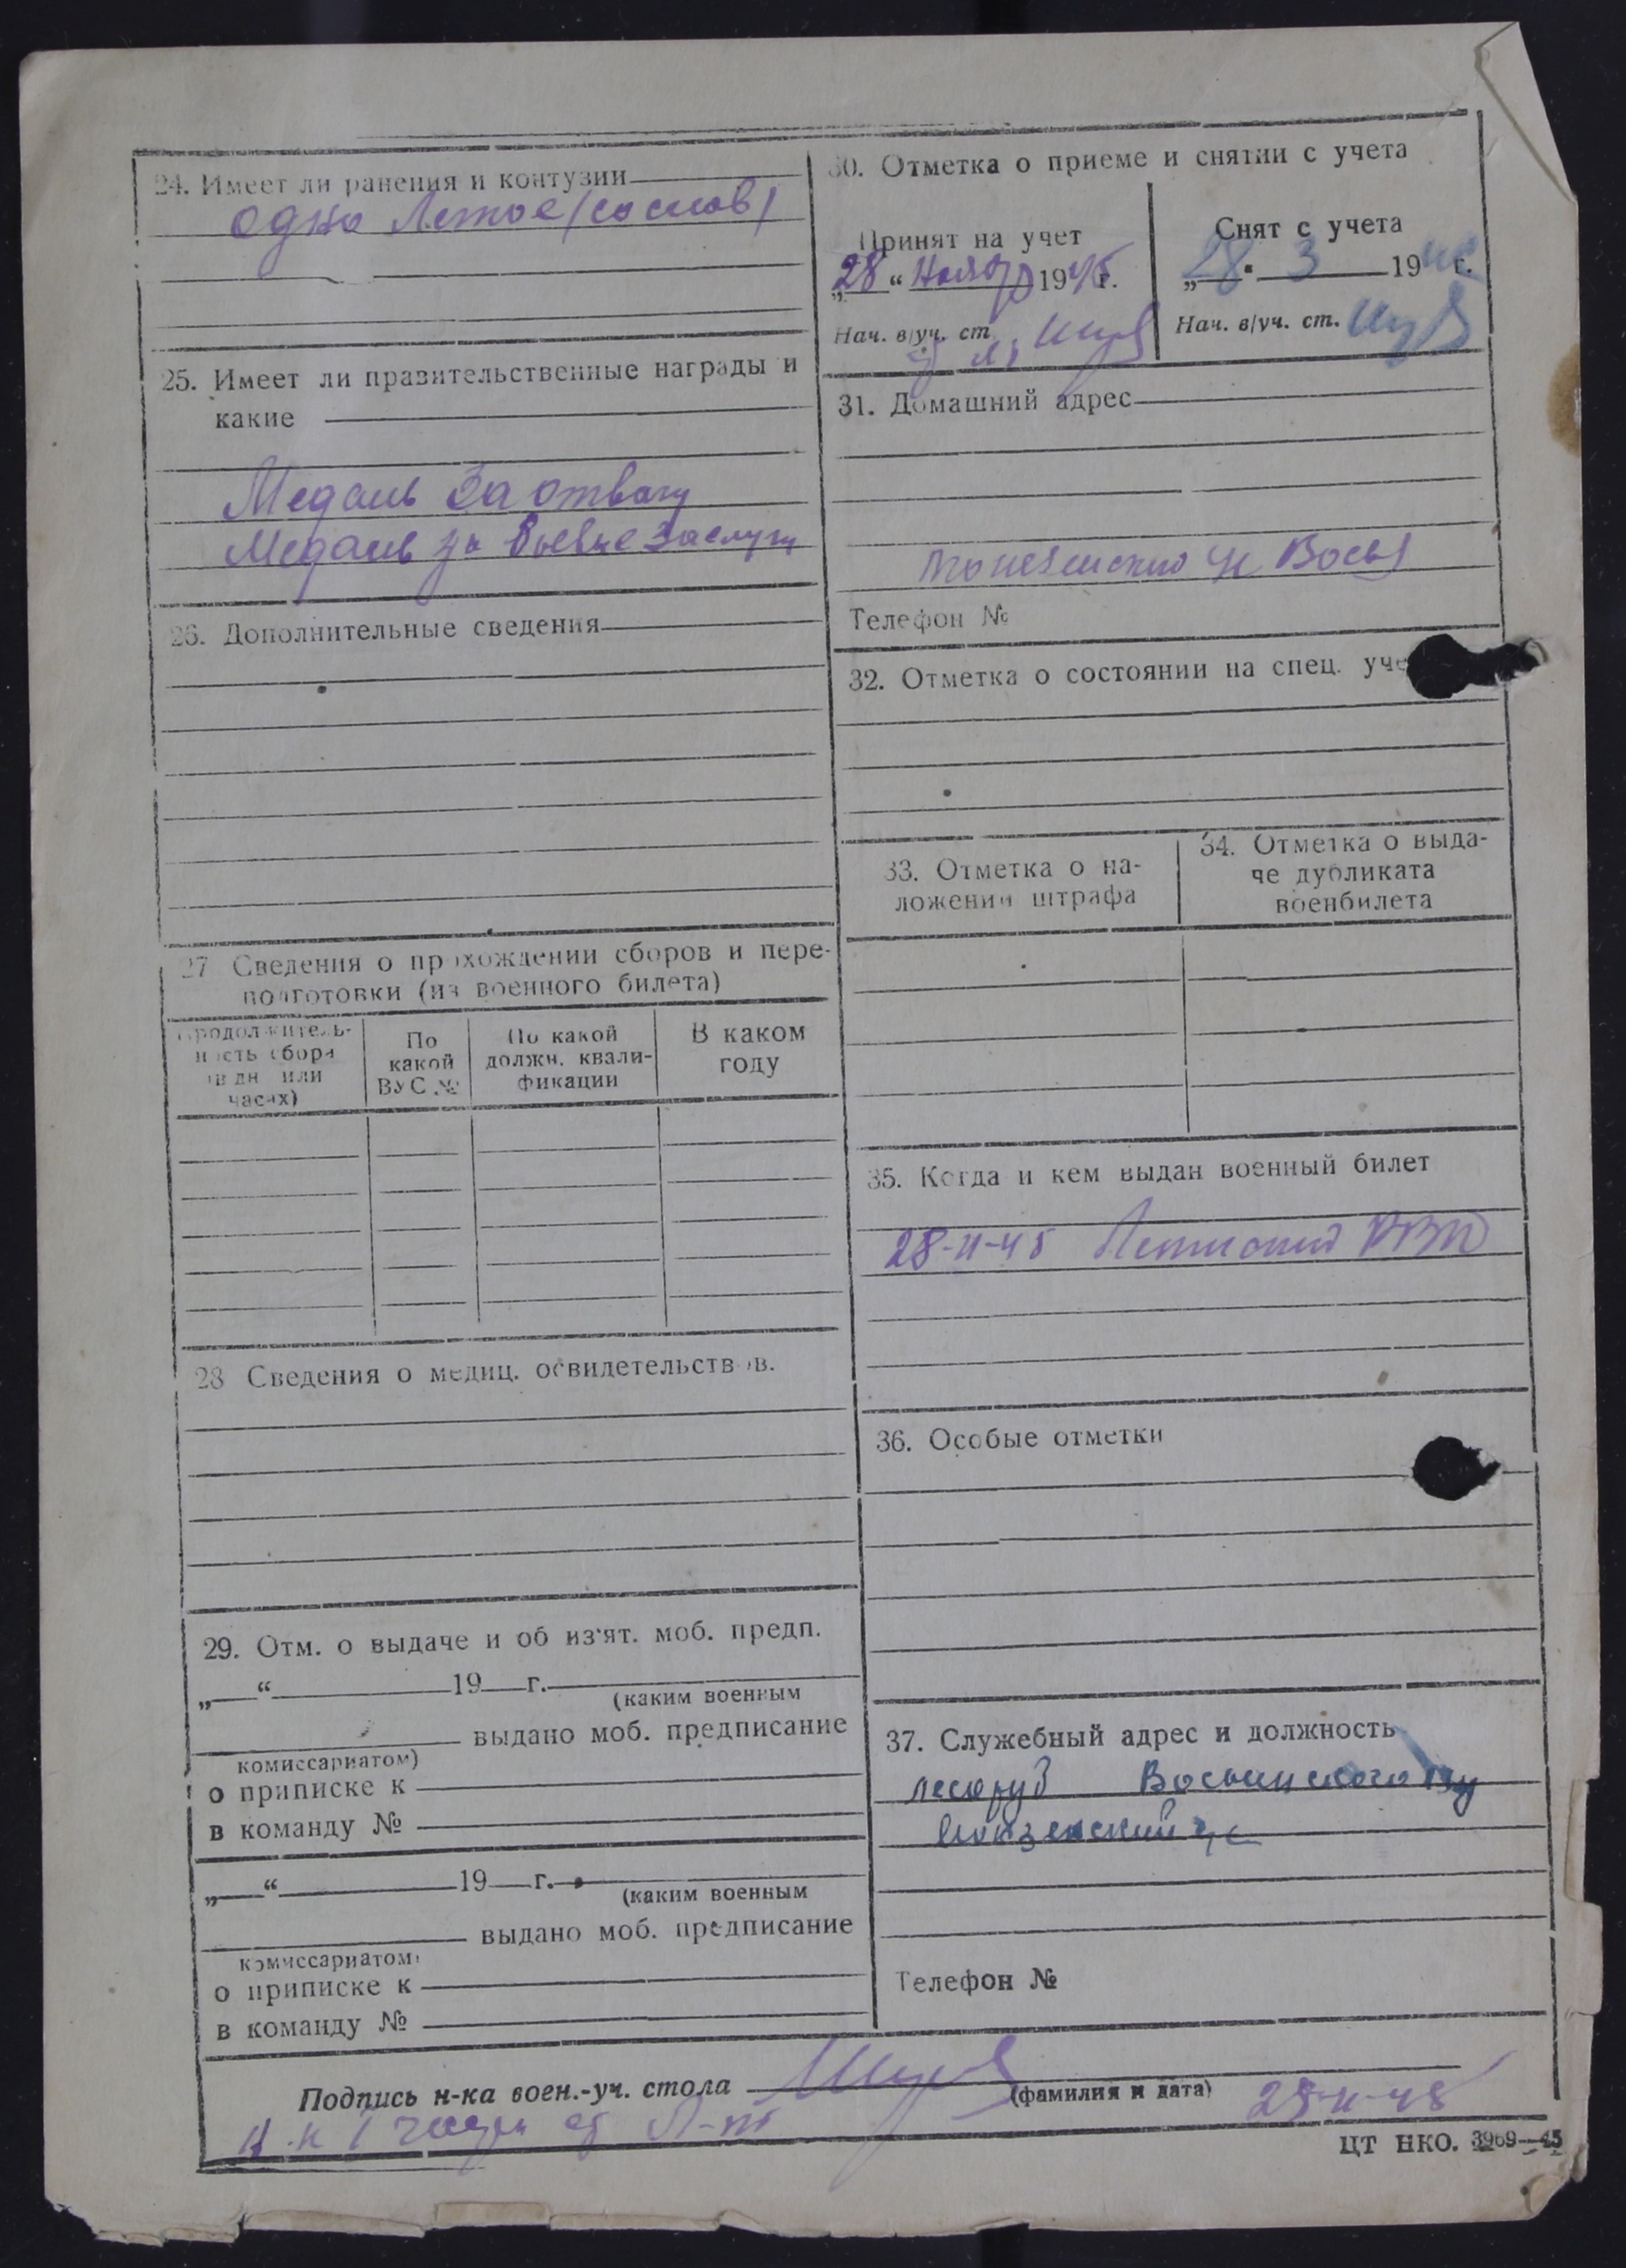 24. Имеет ли ранения и контузии
одно
25. Имеет ли правительственные награды и
какие
Медаль За отвагу
Медаль за боевые заслуги
26. Дополнительные сведения
27 Сведения о прохождении сборов и пере-
подготовки (из военного билета)
Продолжитель-
ность сбора
(в дн или
часах)
По
какой
ВУС №
По какой
должн. квали-
фикации
В каком
году
28 Сведения о медиц. освидетельствов.
29. Отм. о выдаче и об из'ят. моб. предп.
„ “ 19 г.
(каким военным
выдано моб. предписание
комиссариатом)
о приписке к
в команду №
„ “ 19 г.
(каким военным
выдано моб. предписание
комиссариатом)
о приписке к
в команду №
30. Отметка о приеме и снятии с учета
Принят на учет
„28“ Ноября 1945 г.
Нач. в/уч. ст.
Снят с учета
„28“ 3 19 г.
Нач. в/уч. ст.
31. Домашний адрес
Телефон №
32. Отметка о состоянии на спец. уче
33. Отметка о на-
ложении штрафа
34. Отметка о выда-
че дубликата
военбилета
35. Когда и кем выдан военный билет
28-11-45 РВК
36. Особые отметки
37. Служебный адрес и должность
лесоруб
Телефон №
Подпись н-ка воен.-уч. стола
(фамилия и дата)
28-11-45
ЦТ НКО. 3969—45